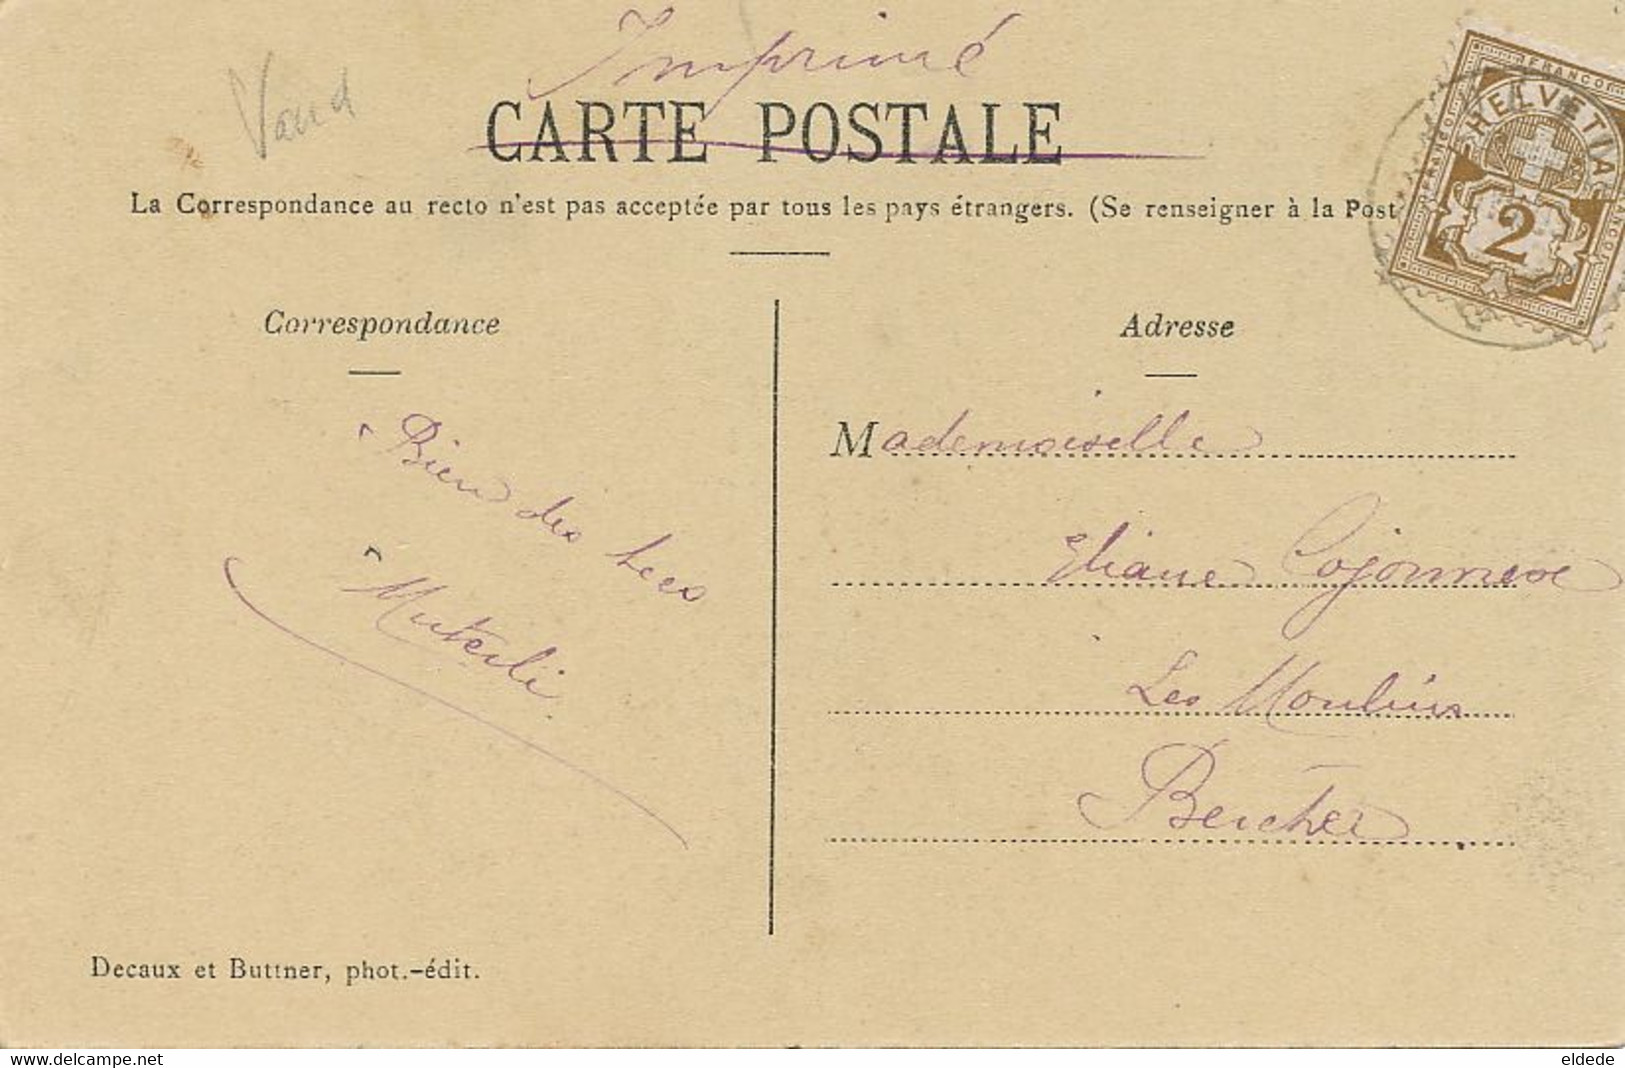 Imprimé
Vaud
CARTE POSTALE
La Correspondance au recto n'est pas acceptée par tous les pays étrangers. (Se renseigner à la Post
FRANCO HELVETIA FRANCO
2
Correspondance
Adresse
Mademoiselle
Eliane
Les Moulins
Bercher
Bien des
Decaux et Buttner, phot.-édit.
www.delcampe.net
eldede